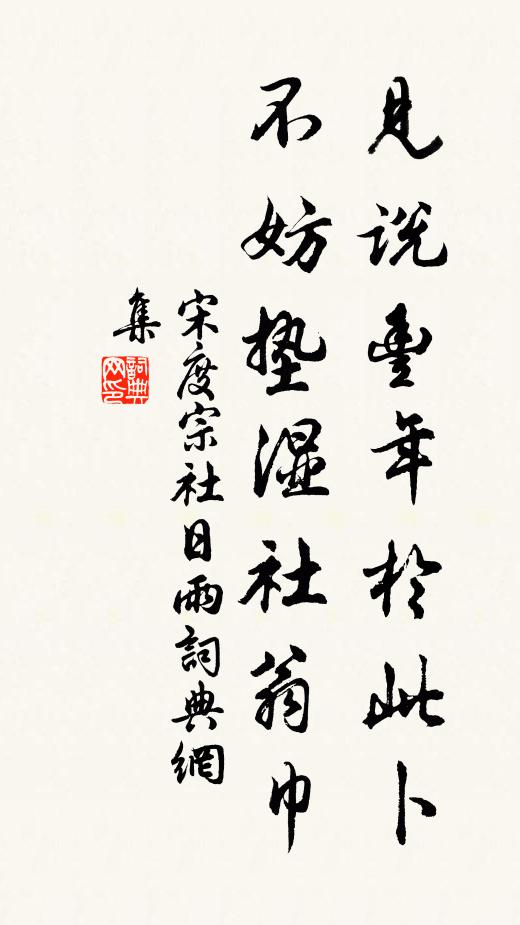 見説豊年於此卜
不妨墊湿社翁巾
宋度宗社日雨詞典網
集
詞典
网印